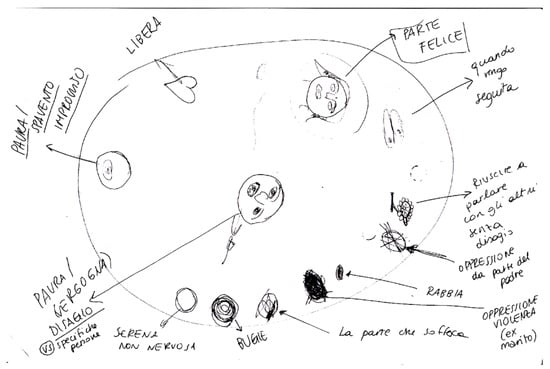 LIBERA
PARTE
FELICE
quando
vengo
seguita
PAURA/
SPAVENTO
IMPROVVISO
RIUSCIRE A
parlare
con gli altri
senza
disagio
OPPRESSIONE
da parte del
padre
RABBIA
OPPRESSIONE
VIOLENTA
(ex
marito)
La parte che soffoca
BUGIE
SERENA
NON NERVOSA
PAURA/
VERGOGNA
DISAGIO
VS specifiche
persone